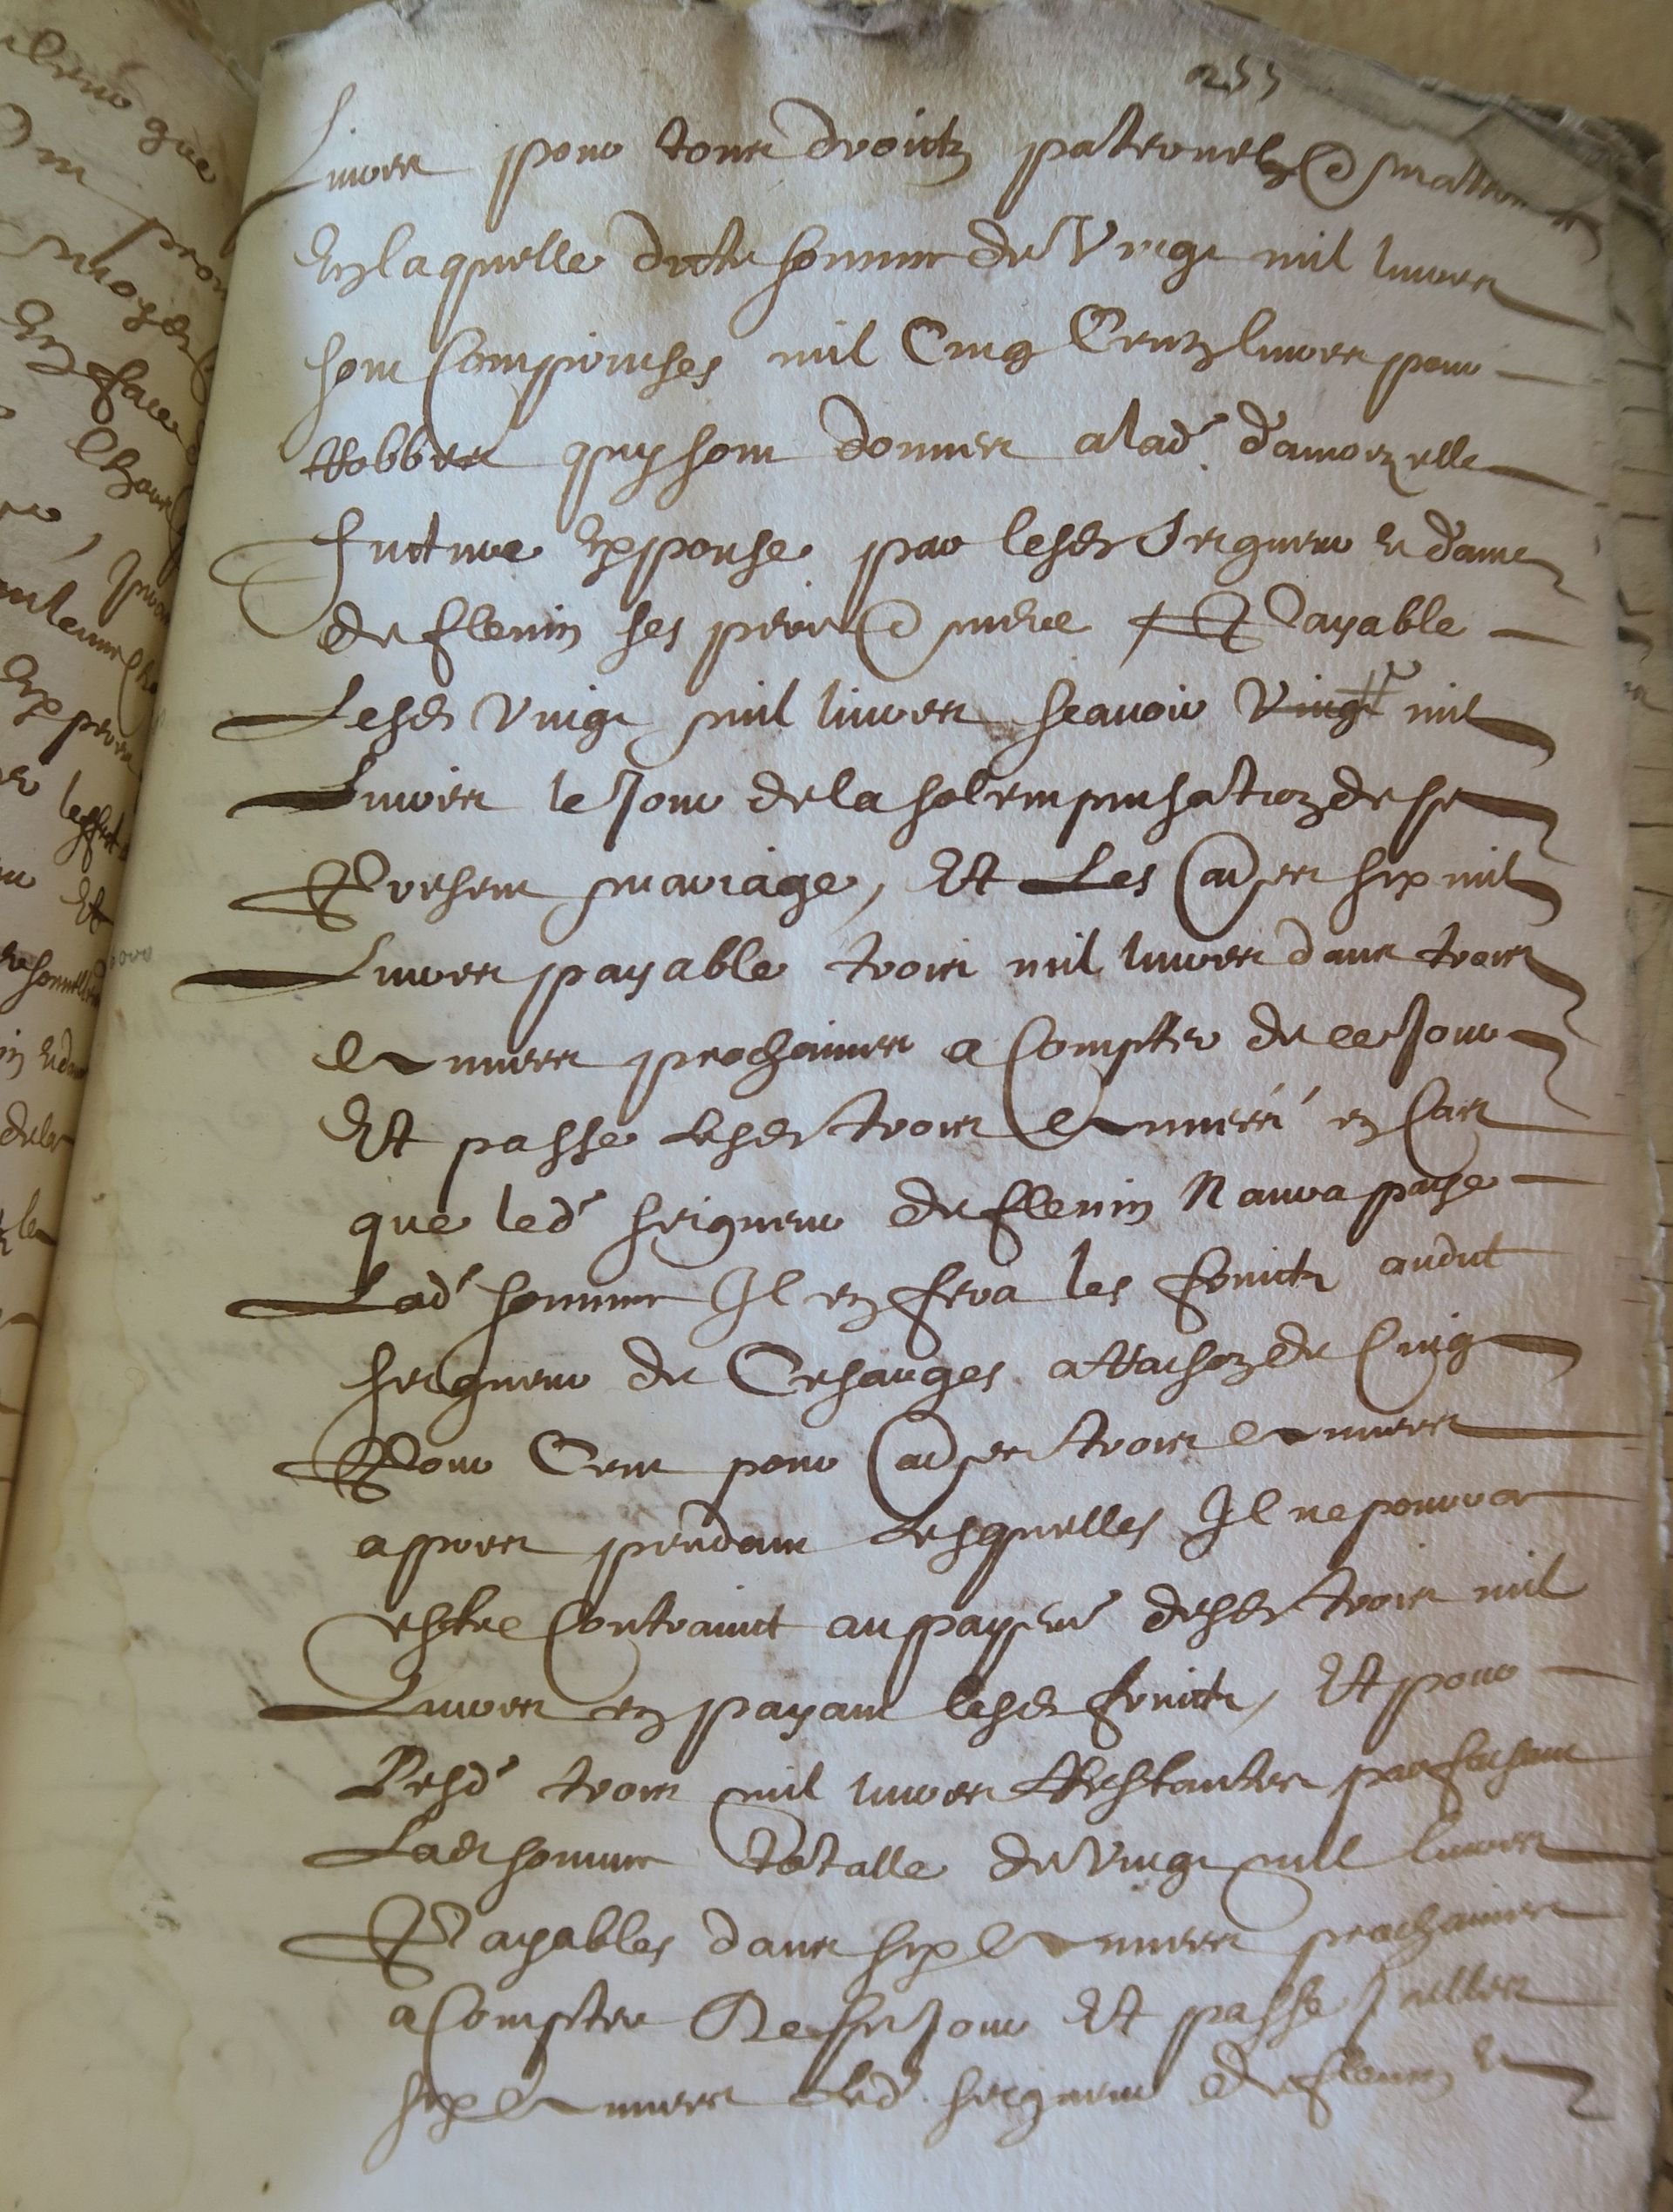 255
Livres pour tous droictz paternelz & mater
En laquelle dicte somme de Vingt mil livres
sont Comprinses mil Cinq Centz livres pour
Robbes quy sont donnes a lad. damoizelle
futture Expouse par lesds Seigneur et dame
de flenin ses pere & mere Payable
Lesds Vingt mil livres scavoir Vingt mil
Livres le Jour de la solempnisation de se
Present mariage, Et Les aultres six mil
Livres payable trois mil livres dans trois
Annees prochaines a Compter de ce Jour
Et passe lesds trois Annees en Cas
que led seigneur de flenin N aura paye
Lad somme Il en fera les fruictz audict
seigneur de Cesarges a Raison de Cinq
Pour Cent pour aultres trois Annees
apres pendant Lesquelles Il ne pourra
estre Contrainct au payem desds trois mil
Livres en payant lesds fruictz, Et pour
Lesd trois mil livres Restantes parfaisant
Lads somme totalle de Vingt mil livres
Payables dans six Annees prochaines
a Compter De se Jour Et passe Icelles
six Annees Led. seigneur de flenin et